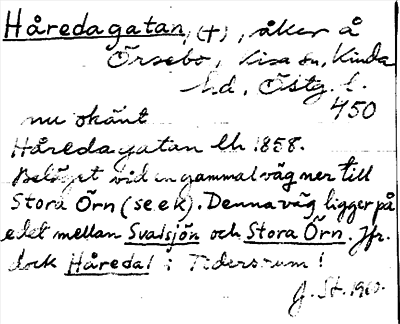 Håredagatan, (+), åker å
Örsebo, Kisa sn, Kinda
hd, Östg. l.
450
nu okänt
Håredagatan lh 1858.
Beläget vid en gammal väg ner till
Stora Örn (se ek). Denna väg ligger på
edet mellan Svalsjön och Stora Örn. Jfr.
dock Håredal i Tidersrum!
J. St. 1960.